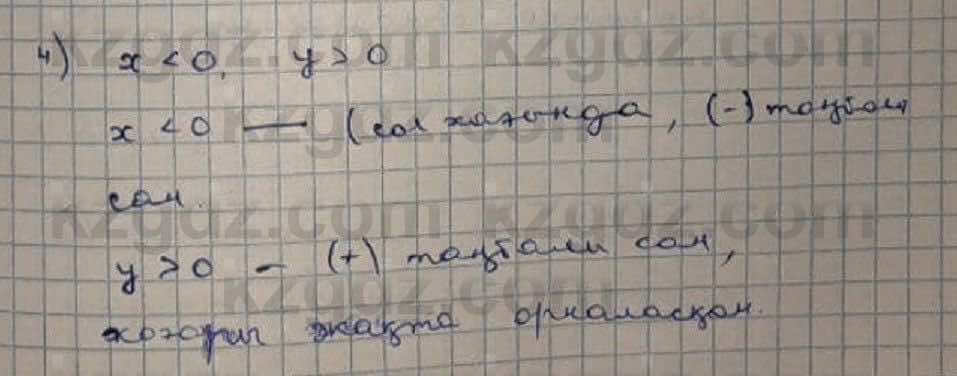 4) x < 0, y > 0
x < 0 — (сол жағында, (-) таңбалы
сан.
y > 0 - (+) таңбалы сан,
жоғарғы жақта орналасқан.
kzgdz.com kzgdz.com
kzgdz.com
kzgdz.com kzgdz.com
kzgdz.com